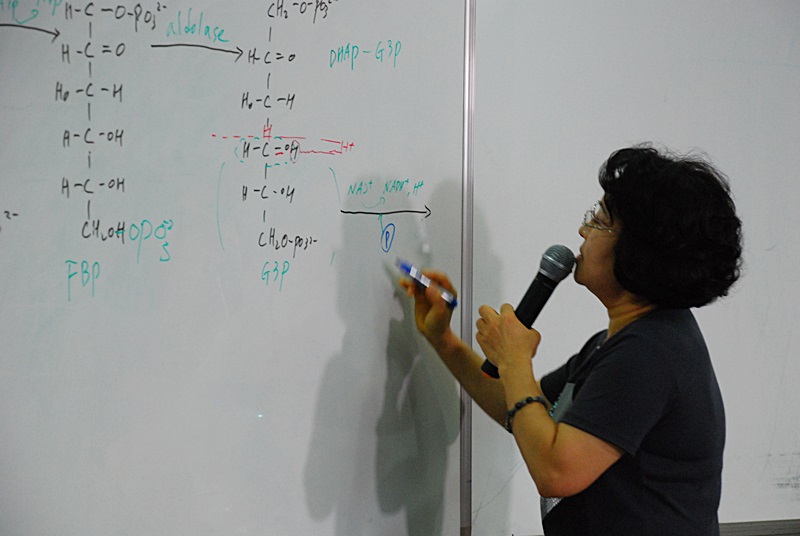 H-C-O-PO3²⁻
H-C=O
Ho-C-H
H-C-OH
H-C-OH
CH2OH OPO3²⁻
FBP
aldolase
CH2-O-PO3²⁻
H-C=O
Ho-C-H
H
H-C=OH H+
H-C-OH
CH2O-PO3²⁻
G3P
DHAP-G3P
NAD+ NADH, H+
P